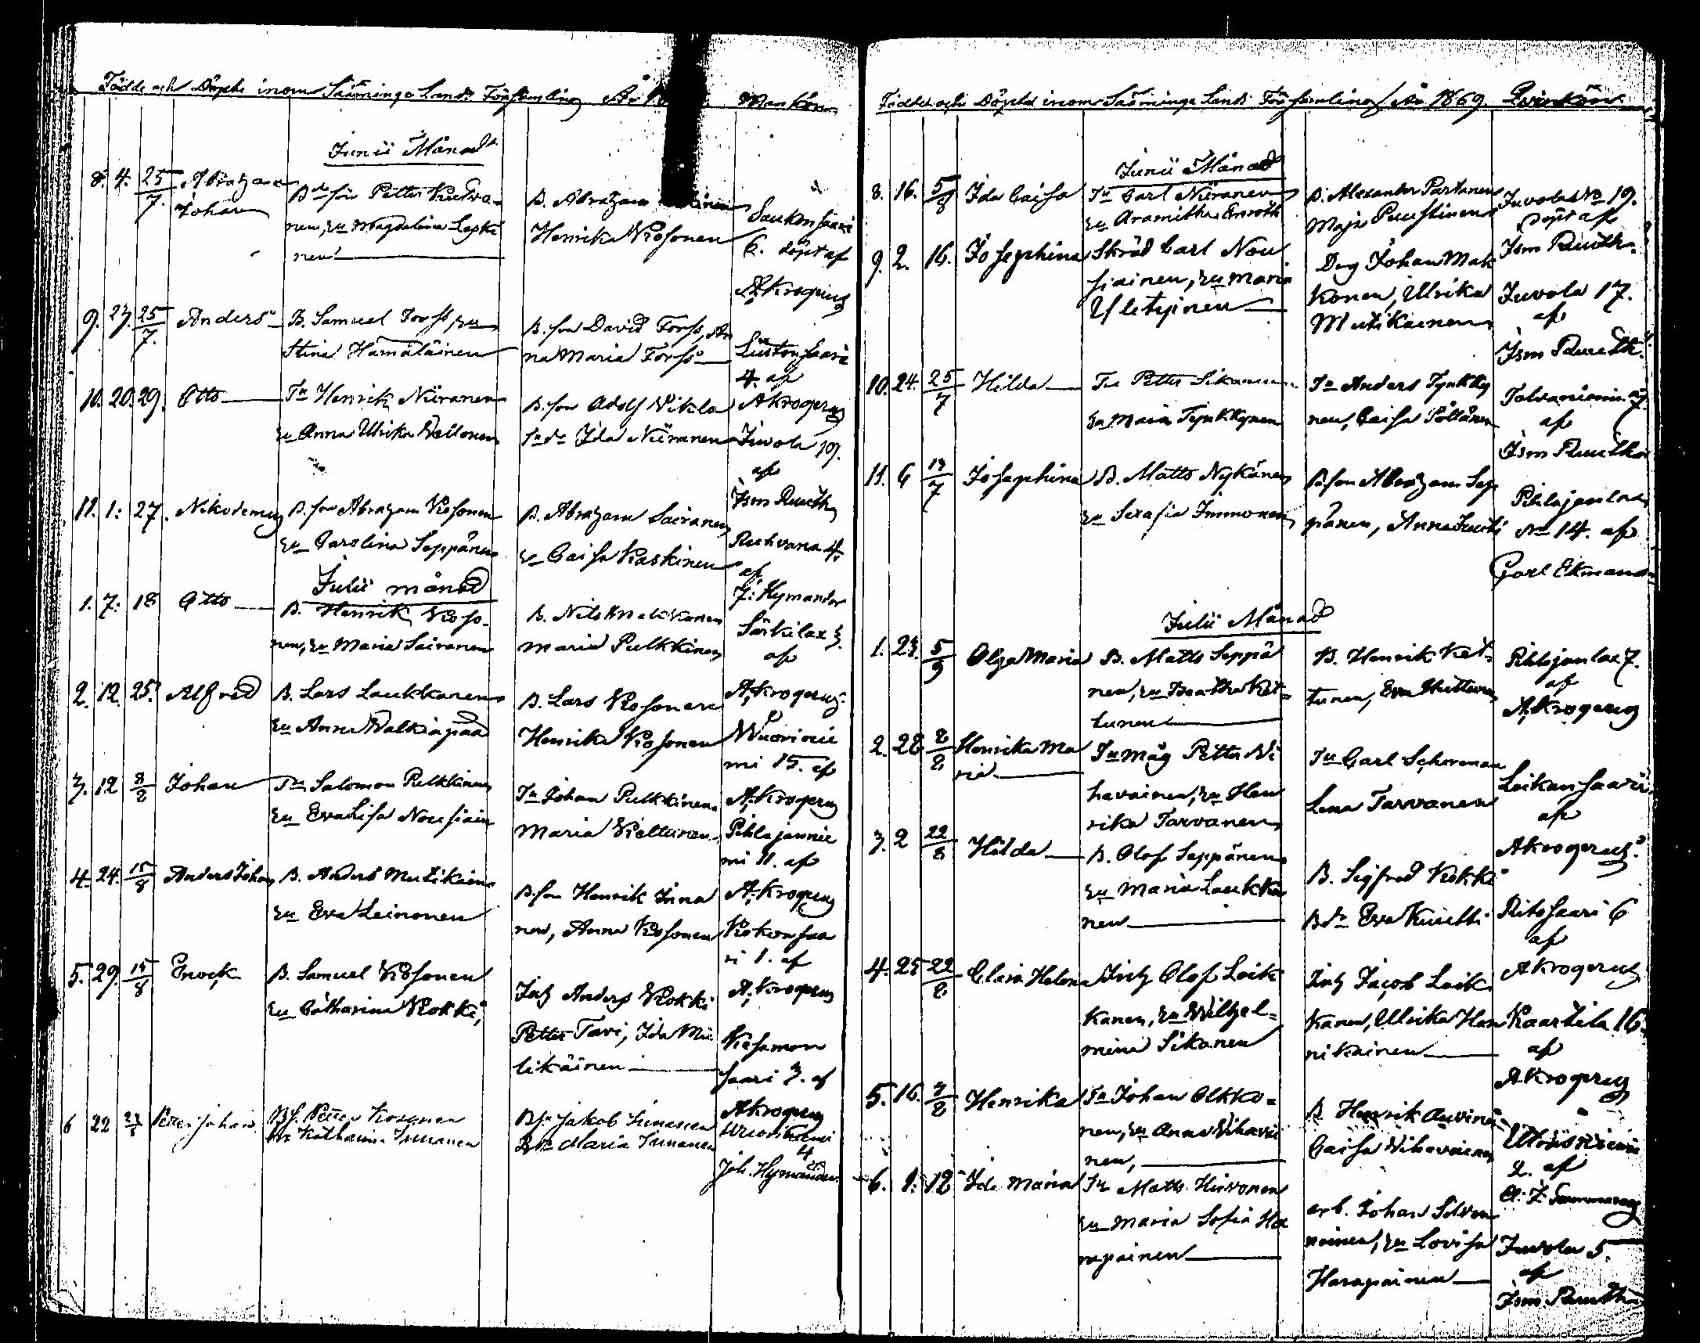 Födde och Döpte inom Säminge Lands Församling År Mankön
Junii Månad
8. 4. 25/7. Abraham Johan
Petter
nen, hu Magdalena
nen
B. Abraham
Henrika Kosonen
Saukonsaari
6. döpt af
A Krogerus
9. 23. 25/7. Anders
B. Samuel Forss, hu
Stina Hämäläinen
B. son David Forss, An
na Maria Forss
Liistonsaari
4. af
A Krogerus
10. 20. 29. Otto
Tn Henrik Niiranen
hu Anna Ulrika Valtonen
B. son Adolf Nikla
Ida Niiranen
Juvola 19.
af
Ism Ruuth
11. 1. 27. Nikodemus
B. son Abraham Kosonen
hu Carolina Seppänen
B. Abraham Sairanen
hu Caisa Kaskinen
Ruhvana 4.
af
J. Hymander
Julii månad
1. 7. 18 Otto
B. Henrik Koso-
nen, hu Maria Sairanen
B. Nils Makkonen
Maria Pulkkinen
Särkilax 3.
af
A. Krogerus
2. 12. 25. Alfred
B. Lars Laukkanen
hu Anna Walkiapää
B. Lars Kosonen
Henrika Kosonen
Wuoriniemi 15. af
A. Krogerus
3. 12 8/8 Johan
Tn Salomon Pulkkinen
hu Eva Lisa Nousiain
Tn Johan Pulkkinen
Maria Kiettunen
Pihlajanniemi 11. af
A. Krogerus
4. 24. 15/8 Anders Johan
B. Anders Mutikain
hu Eva Leinonen
B. son Henrik Inna
nen, Anna Kosonen
Kokonsaa
ri 1. af
A. Krogerus
5. 29. 15/8 Enock
B. Samuel Kosonen
hu Catharina Kokki
Anders Kokki
Petter Tavi, Ida Mie
likäinen
Kesamon
saari 3. af
A Krogerus
6 22 Petter Johan
Bf. Petter Kosonen
hu Katharina Immonen
Bf. Jakob Immonen
Maria Immonen
4
Joh. Hymander

Födde och Döpte inom Säminge Lands Församling År 1869. Qvinkön
Junii Månad
8. 16. 5/8 Ida Caisa
Tn Carl Niiranen
hu Enroth
B. Alexander Partanen
Maja Puustinen
Juvola No 19.
döpt af
Ism Ruuth
9. 2. 16. Josephina
Skräd Carl Nou
siainen, hu Maria
Uletyinen
Drg Johan Mak
konen, Ulrika
Mutikainen
Juvola 17.
af
Ism Ruuth
10. 24. 25/7 Hilda
Tn Petter Sikanen
hu Maria Tynkkynen
Tn Anders Tynkky
nen, Caisa Pöllänen
Talvaniemi 7.
af
Ism Ruuth
11. 6 Josephina
B. Matts Nykänen
hu Serafia Immonen
B. son Abraham Sep
pänen, Anna
Pihlajanlax
No 14. af
Carl Ekman
Julii Månad
1. 23. 5/9 Olga Maria
B. Matts Seppä
nen, hu Beatha Ket-
tunen
B. Henrik Ket-
tunen, Eva Kettunen
Pihlajanlax 7.
af
A. Krogerus
2. 28 8/8 Henrika Ma
ria
Tn måg Petter Vi
havainen, hu Hen
rika Tarvanen
Tn Carl Schovman
Lena Tarvanen
Loikansaari
af
A Krogerus
3. 2 22/8 Hilda
B. Olof Seppänen
hu Maria Laukka
nen
B. Sigfred Kokki
Eva
Ritosaari 6
af
A Krogerus
4. 25 22/8 Clara Helena
Inh Olof Loik
kanen, hu Wilhel-
mina Sikanen
Inh Jacob Loik
kanen, Ulrika Han
nikainen
Kaartila 16.
af
A Krogerus
5. 16. Henrika
Tn Johan Olkko-
nen, hu Anna Vihavai
nen,
B Henrik Auvinen
Caisa Vihavainen
2. af
6. 1. 12 Ida Maria
Tn Matts Hirvonen
hu Maria Sofia Ha
rapainen
arb. Johan Silven
noinen, hu Lovisa
Harapainen
Juvola 5.
af
Ism Ruuth